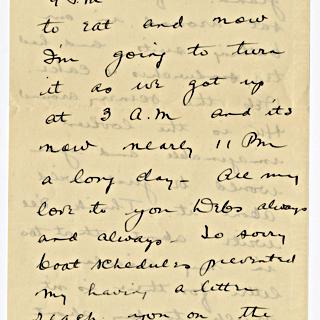 to eat and now
I'm going to turn
it as we got up
at 3 A.M and its
now nearly 11 Pm
a long day - All my
love to you Debs always
and always - So sorry
boat schedules prevented
my having a letter
reach you on the